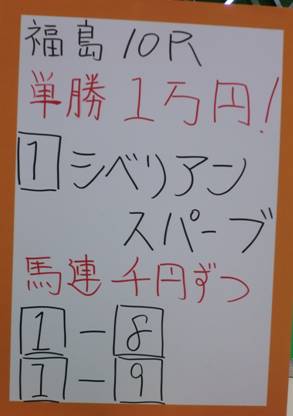 福島10R
単勝1万円!
1 シベリアン
スパーブ
馬連 千円ずつ
1-8
1-9